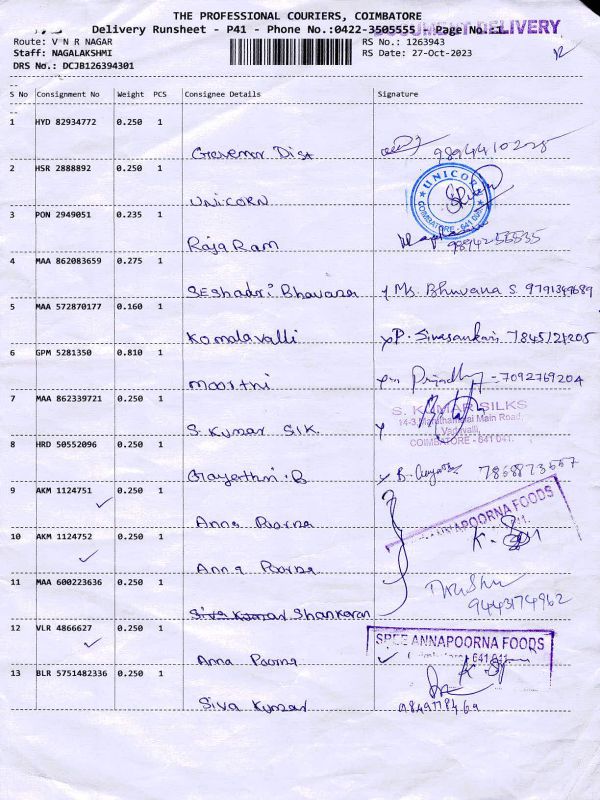 THE PROFESSIONAL COURIERS, COIMBATORE
DOCUMENT DELIVERY
Delivery Runsheet - P41 - Phone No.:0422-3505555 - Page No.:1
Route: V N R NAGAR RS No.: 1263943
Staff: NAGALAKSHMI RS Date: 27-Oct-2023
DRS No.: DCJB126394301
S No Consignment No Weight PCS Consignee Details Signature
1 HYD 82934772 0.250 1
Governor Dist
2 HSR 2888892 0.250 1
UNICORN UNICORN COIMBATORE - 641
3 PON 2949051 0.235 1
Raja Ram
4 MAA 862083659 0.275 1
Seshadri Bhavana Ms. Bhuvana S 9791399689
5 MAA 572870177 0.160 1
Komalavalli P. Sivasankari
6 GPM 5281350 0.810 1
Moorthi - 7092769204
7 MAA 862339721 0.250 1
S. Kumar SILK. S. KUMAR SILKS
14-3, Maruthamalai Main Road,
Vadavalli,
COIMBATORE - 641 041.
8 HRD 50552096 0.250 1
Gayethri.B
9 AKM 1124751 0.250 1
Anna Poorna ANNAPOORNA FOODS
10 AKM 1124752 0.250 1
Anna Poorna
11 MAA 600223636 0.250 1
Siva Kumar Shankaran 9443174962
12 VLR 4866627 0.250 1
Anna Poorna SREE ANNAPOORNA FOODS
13 BLR 5751482336 0.250 1
Siva Kumar